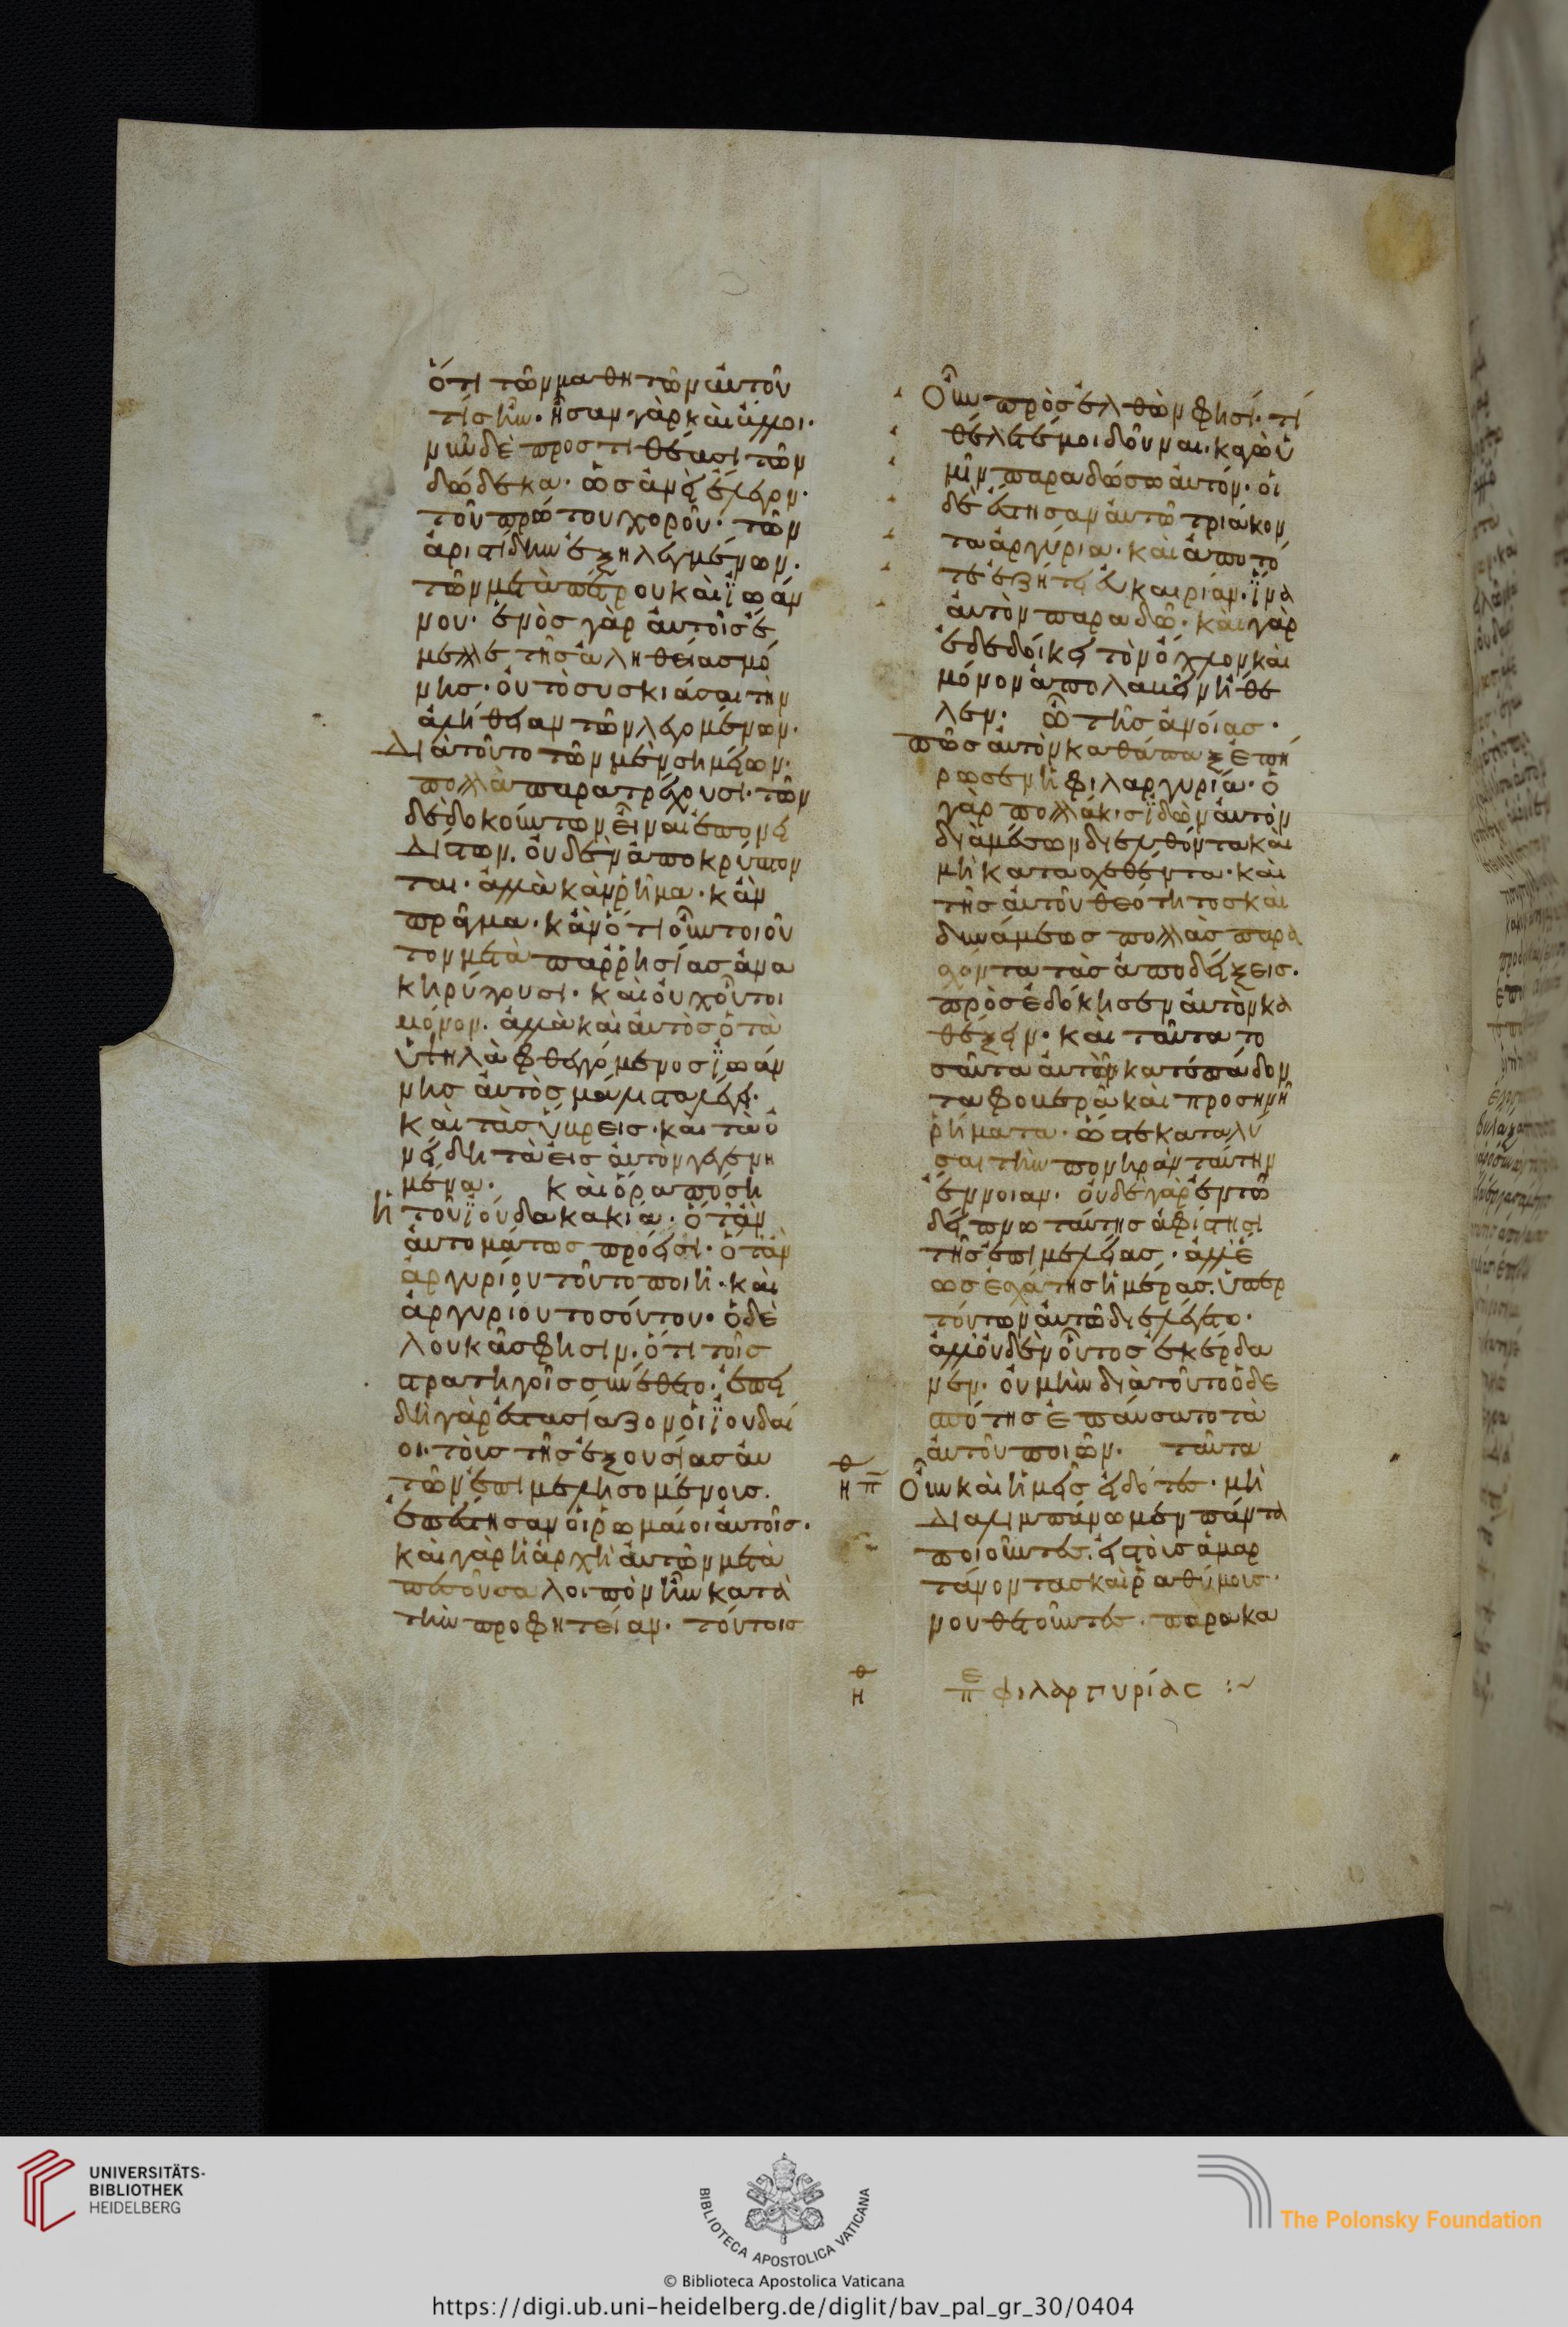 ὅτι τῶν μαθητῶν αὐτοῦ
τίς ἦν. ἦσαν γὰρ καὶ ἄλλοι.
νῦν δὲ προστιθέασι τῶν
δώδεκα. ὡσανεὶ ἔλεγον.
τοῦ πρώτου χοροῦ. τῶν
ἀριστίδην ἐξηλεγμένων.
τῶν μετὰ πέτρου καὶ ἰωάν
νου. ἑνὸς γὰρ αὐτοῖς ἔ
μελλε τῆς ἀληθείας μό
νης. οὐ τὸ συσκιάσαι τὴν
ἀλήθειαν τῶν λεγομένων.
Διὰ τοῦτο τῶν μὲν σημείων.
πολλὰ παρατρέχουσι. τῶν
δὲ δοκούντων εἶναι ἐπονει
Δίστων. οὐδὲν ἀποκρύπτον
ται. ἀλλὰ κἂν ῥῆμα. κἂν
πρᾶγμα. κἂν ὅτι οὖν τοιοῦ
τον μετὰ παρρησίας ἀνα
κηρύττουσι. καὶ οὐχ οὗτοι
μόνον. ἀλλὰ καὶ αὐτὸς ὁ τὰ
ὑψηλὰ φθεγγόμενος ἰωάν
νης αὐτὸς μάλιστα λέγει.
καὶ τὰς ὕβρεις. καὶ τὰ ὀ
νείδη τὰ εἰς αὐτὸν γεγενη
μένα. καὶ ὅρα πόση
ἡ τοῦ ἰούδα κακία. ὅταν
αὐτομάτως πρόσεισι. ὅταν
ἀργυρίου τοῦτο ποιῇ. καὶ
ἀργυρίου τοσούτου. ὁ δὲ
λουκᾶς φησιν. ὅτι τοῖς
στρατηγοῖς συνέθετο. ἐπει
δὴ γὰρ ἐστασίαζον οἱ ἰουδαῖ
οι. τοὺς τῆς ἐξουσίας αὐ
τῶν ἐπιμελησομένους.
ἐπέστησαν οἱ ῥωμαῖοι αὐτοῖς.
καὶ γὰρ ἡ ἀρχὴ αὐτῶν μετὰ
πεσοῦσα λοιπὸν ἦν κατὰ
τὴν προφητείαν. τούτοις
Οὖν προσελθὼν φησί. τί
θέλετέ μοι δοῦναι. κἀγὼ ὑ
μῖν παραδώσω αὐτόν. οἱ
δὲ ἔστησαν αὐτῷ τριάκον
τα ἀργύρια. καὶ ἀπὸ τό
τε ἐζήτει εὐκαιρίαν. ἵνα
αὐτὸν παραδῶ. καὶ γὰρ
ἐδεδοίκει τὸν ὄχλον καὶ
μόνον ἀπολαβεῖν ἤθε
λεν. ὢ τῆς ἀνοίας.
πῶς αὐτὸν καθάπαξ ἐπή
ρωσεν ἡ φιλαργυρία. ὁ
γὰρ πολλάκις ἰδὼν αὐτὸν
διὰ μέσων διελθόντα καὶ
μὴ κατασχεθέντα. καὶ
τῆς αὐτοῦ θεότητος καὶ
δυνάμεως πολλὰς παρα
σχόντα τὰς ἀποδείξεις.
προσεδόκησεν αὐτὸν κα
θέξειν. καὶ ταῦτα το
σαῦτα αὐτὸν κατεπάδον
τα φοβερὰ καὶ προσηνῆ
ῥήματα. ὥστε καταλῦ
σαι τὴν πονηρὰν ταύτην
ἔννοιαν. οὐδὲ γὰρ ἐν τῷ
δείπνῳ ταύτης ἀφίστησι
τῆς ἐπιμελείας. ἀλλ' ἕ
ως ἐσχάτης ἡμέρας. ὑπὲρ
τούτων αὐτῷ διελέγετο.
ἀλλ' οὐδὲν οὗτος ἐκέρδα
νεν. οὐ μὴν διὰ τοῦτο ὁ δε
σπότης ἐπαύσατο τὰ
αὐτοῦ ποιῶν. ταῦτα
Οὖν καὶ ἡμεῖς εἰδότες. μὴ
Διαλιμπάνωμεν πάντα
ποιοῦντες. εἰς τοὺς ἁμαρ
τάνοντας καὶ ῥαθύμους.
νουθετοῦντες. παρακα
ΗΘ Επ φιλαργυρίας :~
UNIVERSITÄTS-
BIBLIOTHEK
HEIDELBERG
BIBLIOTECA APOSTOLICA VATICANA
The Polonsky Foundation
© Biblioteca Apostolica Vaticana
https://digi.ub.uni-heidelberg.de/diglit/bav_pal_gr_30/0404